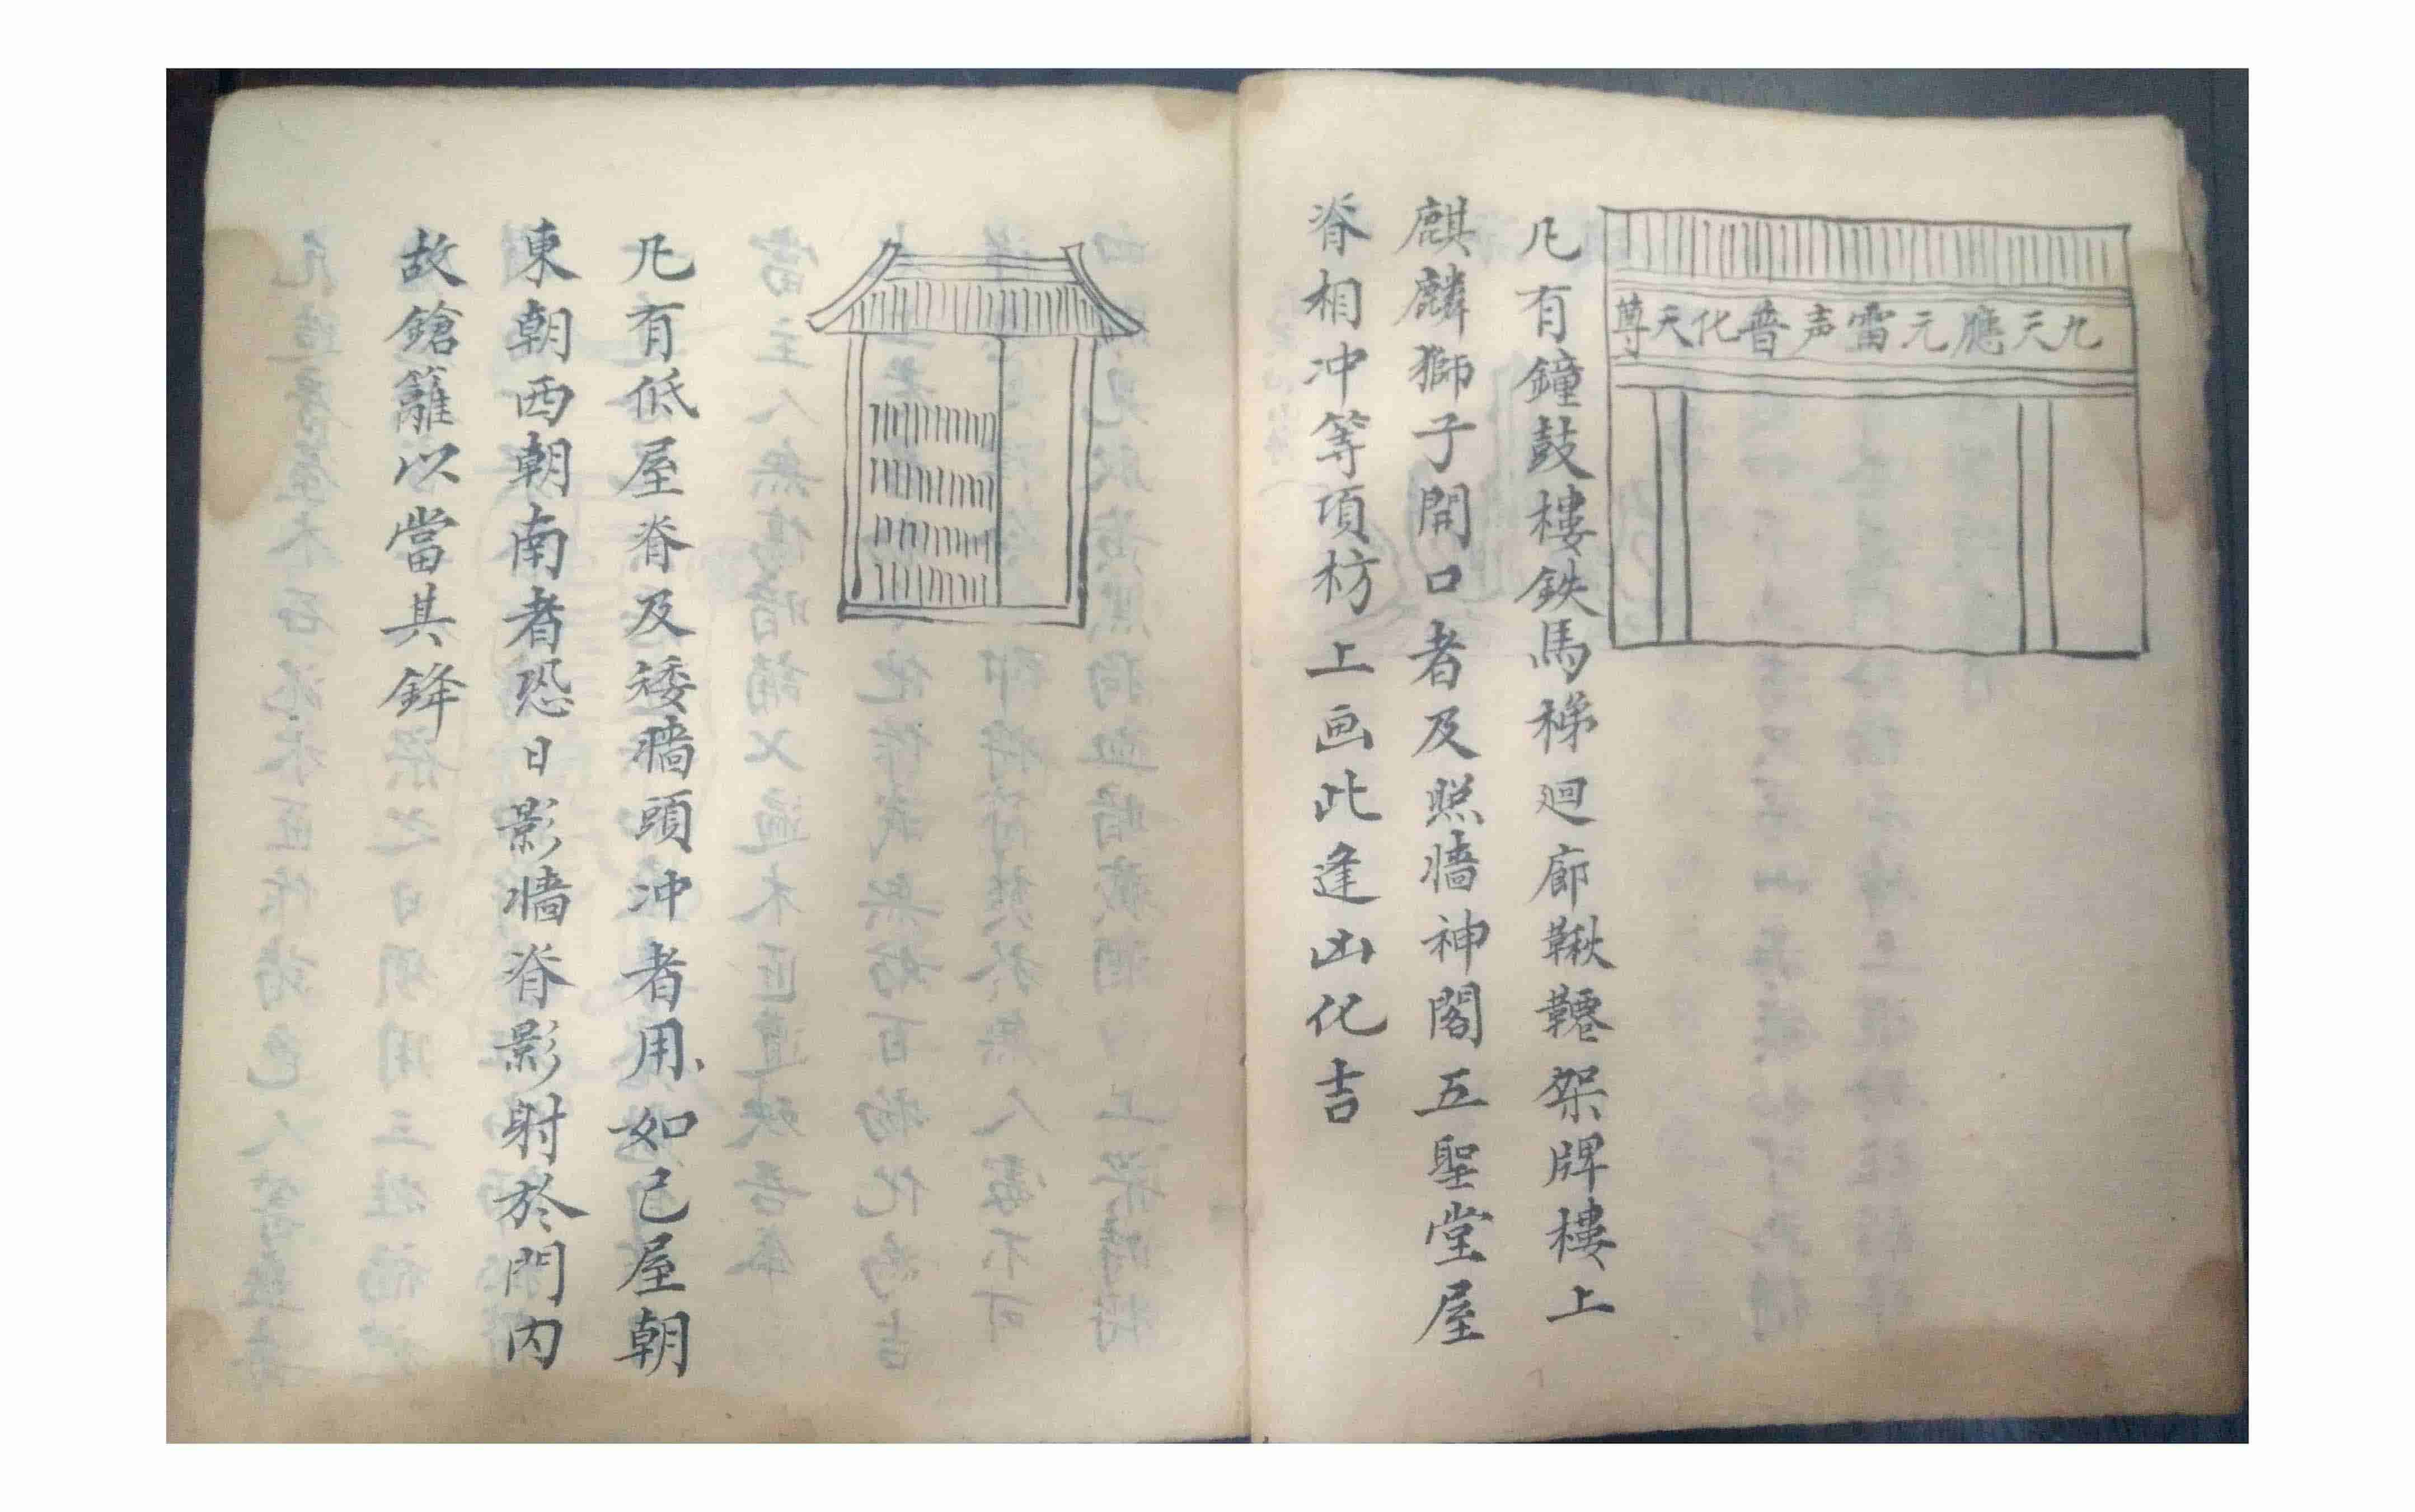 九天應元雷声普化天尊
凡有鐘鼓樓鉄馬梯廻廊鞦韆架牌樓上
麒麟獅子開口者及照牆神閣五聖堂屋
脊相冲等項枋上画此逢凶化吉
凡有低屋脊及矮牆頭冲者用如己屋朝
東朝西朝南者恐日影牆脊影射於門内
故鎗籬以當其鋒